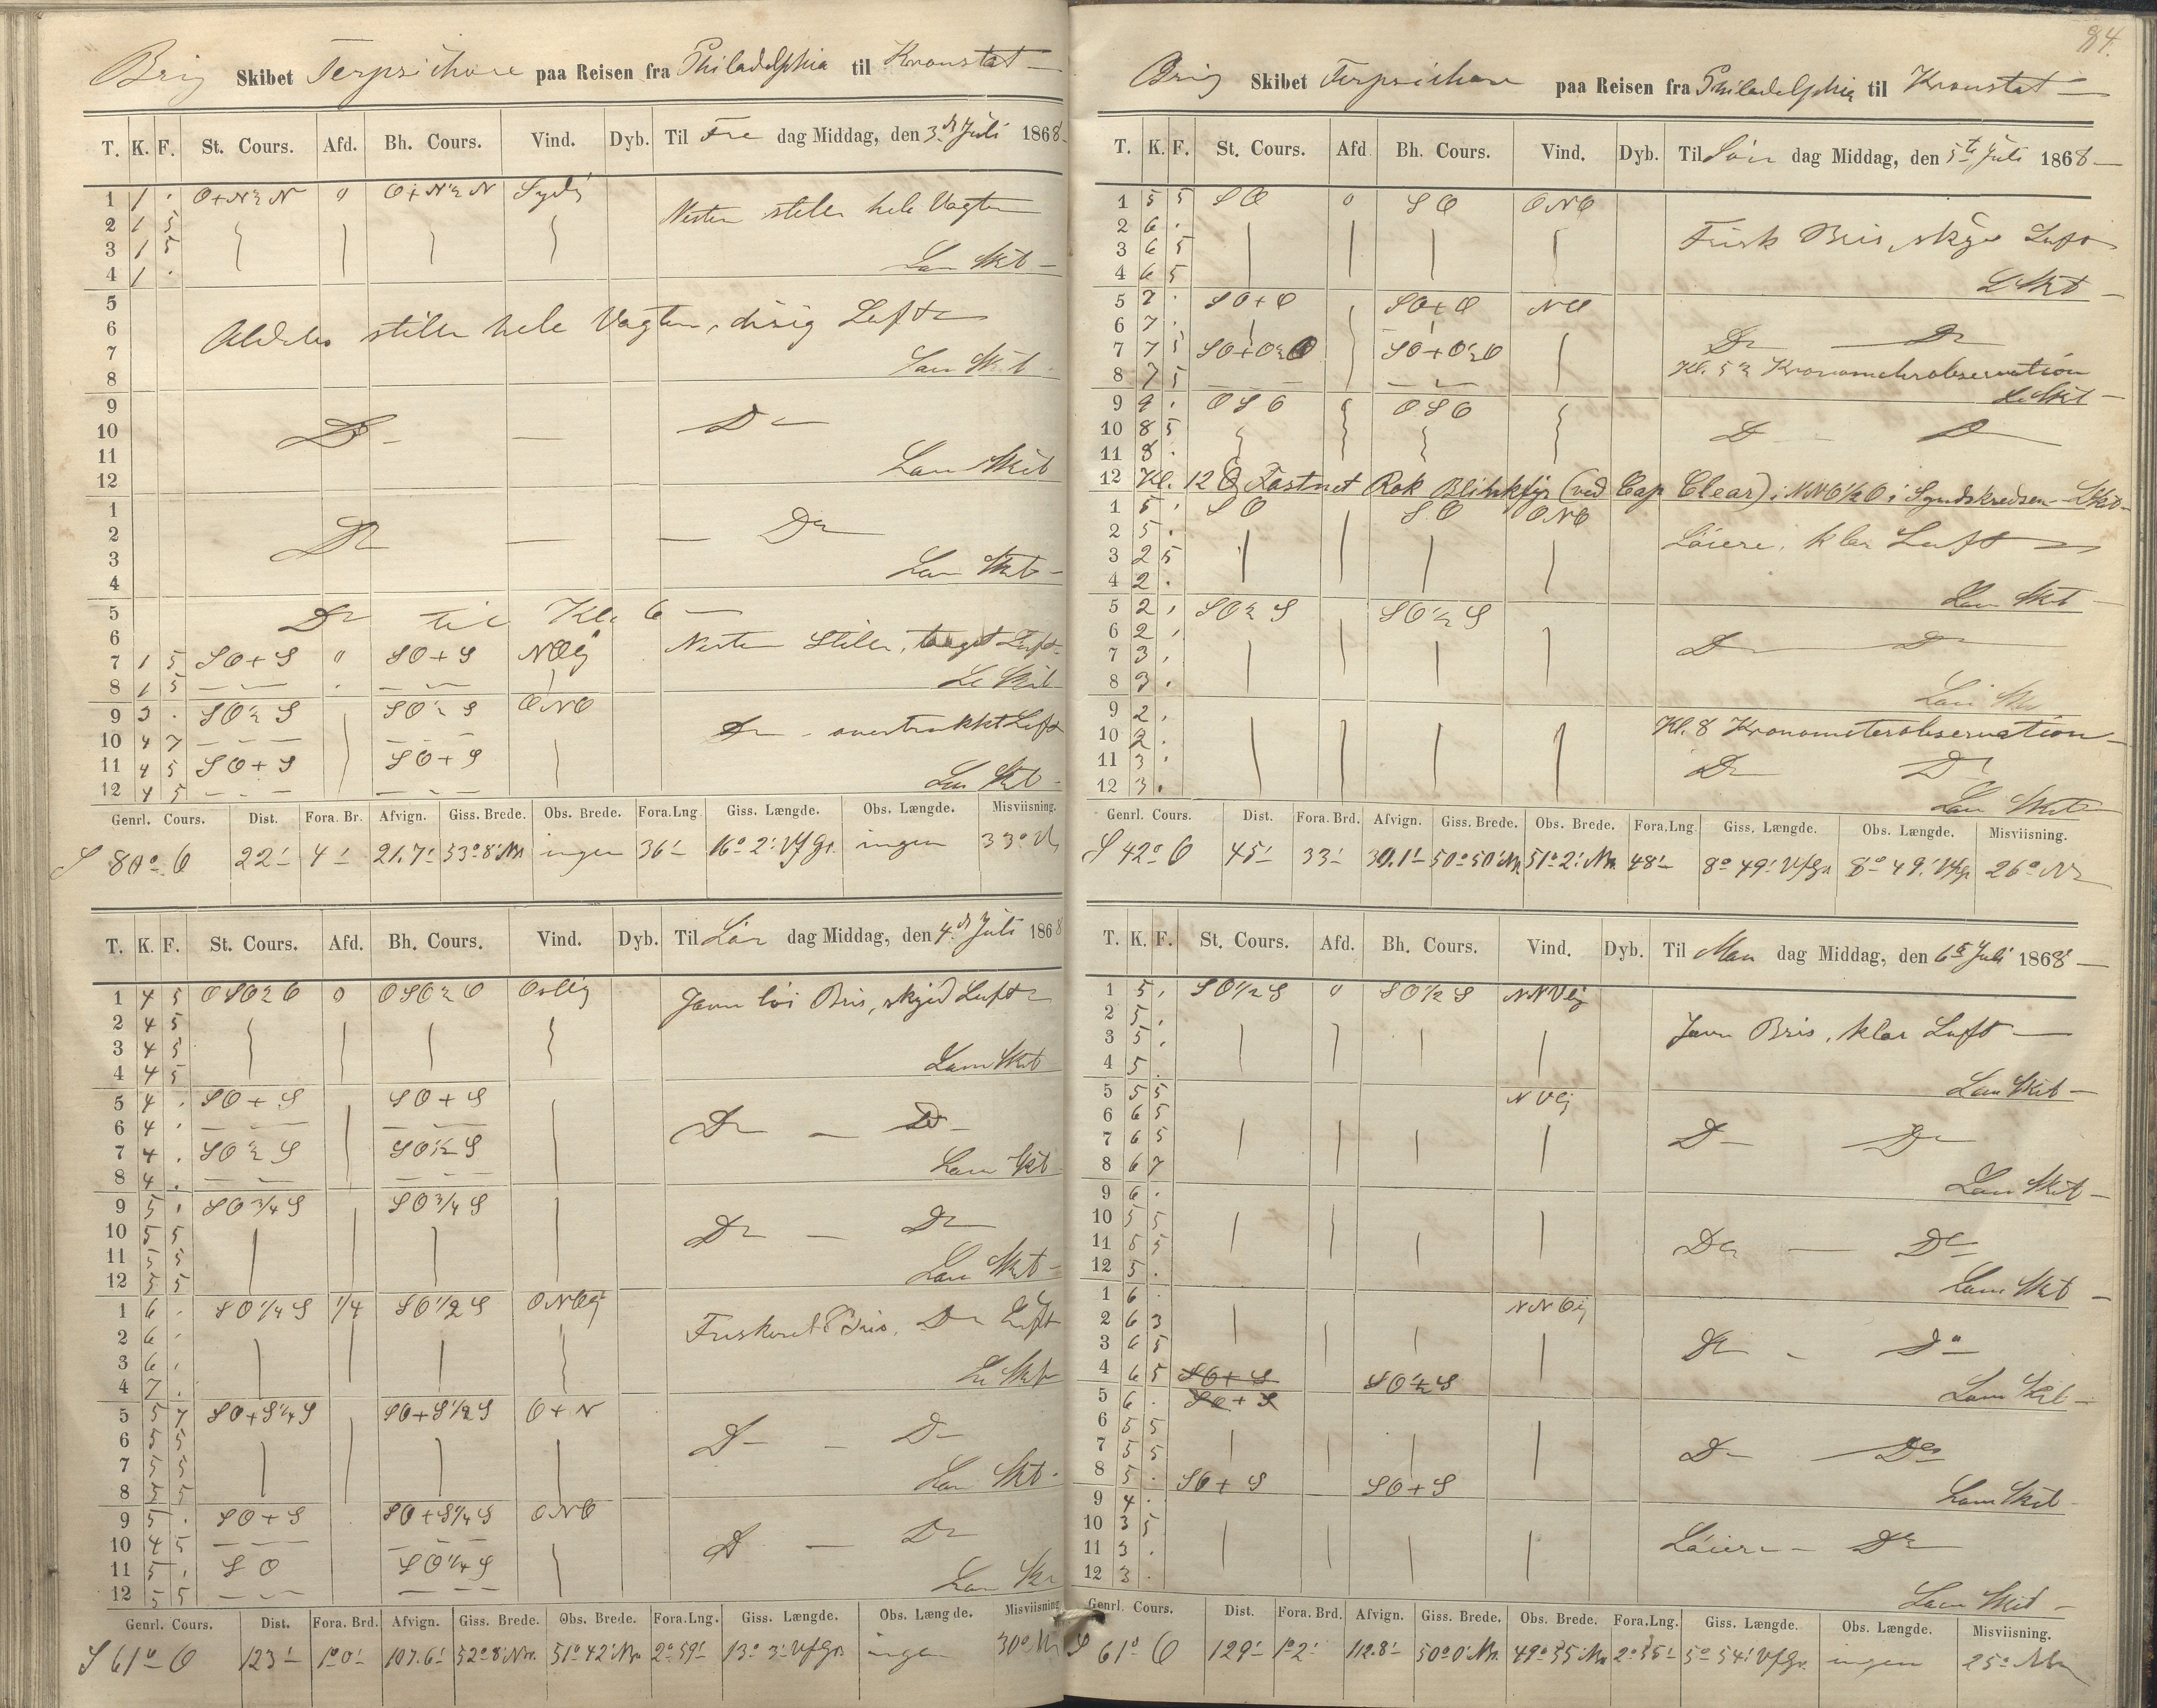 Brig Skibet Terpsichore paa Reisen fra Philadelphia til Kronstat
T. K. F. St. Cours. Afd. Bh. Cours. Vind. Dyb. Til Fre dag Middag, den 3. Juli 1868
1 1 . O+N½N 0 O+N½N Sydlig
Nesten stille hele Vagten
2 1 5
3 1 5
4 1 .
5
6 stille hele Vagten, disig Luft
7
8
9
10 Do — Do
11
12
1
2 Do — Do
3
4
5 Do til Kl. 6
6
7 1 5 SO+S 0 SO+S NOlig Nesten Stille, taaget Luft
8 1 5
9 3 . SO½S SO½S ONO
10 4 7 Do overtrukket Luft
11 4 5 SO+S SO+S
12 4 5
Genrl. Cours. Dist. Fora. Br. Afvign. Giss. Brede. Obs. Brede. Fora.Lng Giss. Længde. Obs. Længde. Misviisning.
S 80° O 22' 4' 21.7' 53° 8' N ingen 36' 16° 2' ingen 33°
T. K. F. St. Cours. Afd. Bh. Cours. Vind. Dyb. Til Lör dag Middag, den 4. Juli 1868
1 4 5 OSO½O 0 OSO½O Ostlig Javn löi Bris, skyed Luft
2 4 5
3 4 5
4 4 5
5 4 . SO+S SO+S
6 4 . Do — Do
7 4 . SO½S SO½S
8 4 .
9 5 . SO¾S SO¾S
10 5 5 Do — Do
11 5 5
12 5 5
1 6 . SO¼S ¼ SO½S ONOlig
2 6 . Friskeret Bris, Do Luft
3 6 .
4 7 .
5 5 7 SO+S¼S SO+S½S O+N
6 5 5 Do — Do
7 5 5
8 5 5
9 5 . SO+S SO+S¼S ONO
10 4 5 Do — Do
11 5 . SO SO¼S
12 5 5
Genrl. Cours. Dist. Fora. Brd. Afvign. Giss. Brede. Obs. Brede. Fora.Lng. Giss. Længde. Obs. Længde. Misviisning
S 61° O 123' 1° 0' 107.6' 52° 8' N 51° 42' N 2° 59' 13° 3' ingen 30°
84.
Brig Skibet Terpsichore paa Reisen fra Philadelphia til Kronstat
T. K. F. St. Cours. Afd. Bh. Cours. Vind. Dyb. Til Sön dag Middag, den 5te Juli 1868
1 5 5 SO 0 SO ONO
2 6 . Frisk Bris, skyet Luft
3 6 5
4 6 5
5 7 . SO+O SO+O NO
6 7 . Do — Do
7 7 5 SO+O½O SO+O½O
8 7 5 Kl. 5½ Kronometerobservation
9 9 . OSO OSO
10 8 5 Do Do
11 8 .
12 Kl. 12 Fastnet Rok Blinkfyr (ved Cap Clear) i NNO½O i Syndskredsen
1 5 . SO SO ONO
2 5 . Löiere, klar Luft
3 2 5
4 2 .
5 2 . SO½S SO½S
6 2 . Do Do
7 3 .
8 3 .
9 2 . Kl. 8 Kronometerobservation
10 2 .
11 3 . Do Do
12 3 .
Genrl. Cours. Dist. Fora. Brd. Afvign. Giss. Brede. Obs. Brede. Fora.Lng Giss. Længde. Obs. Længde. Misviisning.
S 42° O 45' 33' 30.1' 50° 50' N 51° 2' N 48' 8° 49' 8° 49' 26°
T. K. F. St. Cours. Afd. Bh. Cours. Vind. Dyb. Til Man dag Middag, den 6te Juli 1868
1 5 . SO½S 0 SO½S NNVlig
2 5 . Javn Bris, klar Luft
3 5 .
4 5 .
5 5 5 NVlig
6 6 5
7 6 5 Do Do
8 6 7
9 6 .
10 5 5
11 5 5 Do — Do
12 5 .
1 6 . NNOlig
2 6 3
3 6 5 Do Do
4 6 5 SO+S SO½S
5 6 . SO+S
6 5 5
7 5 5 Do Do
8 5 . SO+S SO+S
9 4 .
10 3 5
11 3 . Löiere Do
12 3 .
Genrl. Cours. Dist. Fora. Brd. Afvign. Giss. Brede. Obs. Brede. Fora.Lng. Giss. Længde. Obs. Længde. Misviisning.
S 61° O 129' 1° 2' 112.8' 50° 0' N 49° 55' N 2° 55' 5° 54' ingen 25°